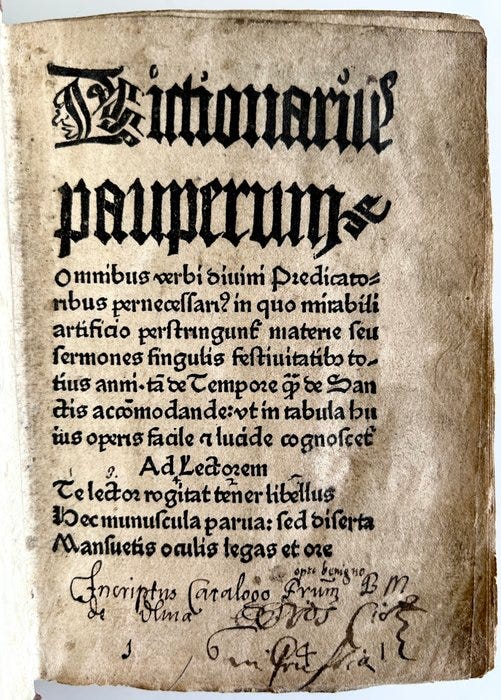 Dictionariuſ
pauperum
Omnibus verbi diuini Predicato-
ribus perneceſſariꝰ in quo mirabili
artificio perſtringunt᷑ materie ſeu
ſermones ſingulis feſtiuitatibꝰ to-
tius anni. tā de Tempore qͣ̄ de San
ctis accōmodande: vt in tabula hu
ius operis facile ⁊ lucide cognoſcet᷑
Ad Lectorem
Te lector rogitat tener libellus
Hec munuscula parua: sed diserta
Manſuetis oculis legas et ore
opte benigno
Inscriptus Catalogo Frum B M
de Vlma
1 6 4 1